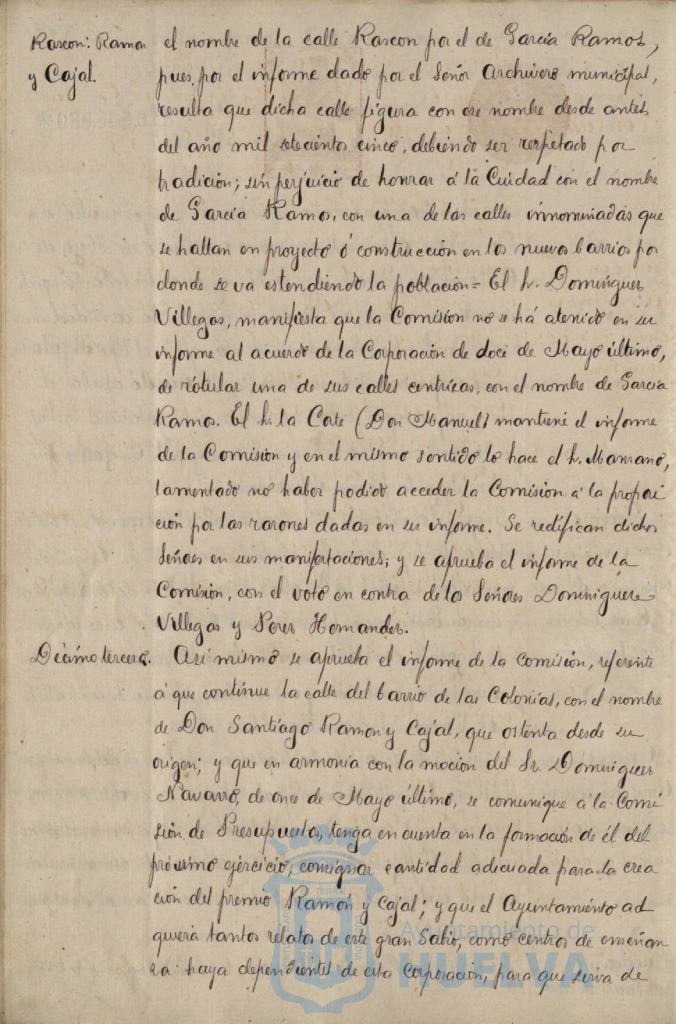 Rascon: Ramon
y Cajal.
el nombre de la calle Rascon por el de Garcia Ramos,
pues, por el informe dado por el Señor Archivero municipal,
resulta que dicha calle figura con ese nombre desde antes
del año mil setecientos cinco, debiendo ser respetado por
tradición; sin perjuicio de honrar á la Cuidad con el nombre
de Garcia Ramos, con una de las calles innominadas que
se hallan en proyecto ó construcción en los nuevos barrios por
donde se va estendiendo la población= El Sr. Dominguez
Villegas, manifiesta que la Comision no se há atenido en su
informe al acuerdo de la Corporación de doce de Mayo último,
de rótular una de sus calles centricas, con el nombre de Garcia
Ramos. El Sr. la Corte (Don Manuel) mantiene el informe
de la Comision y en el mismo sentido lo hace el Sr. Manzano,
lamentado no haber podido acceder la Comision á la proposi
ción por las razones dadas en su informe. Se redifican dichos
Señores en sus manifestaciones; y se aprueba el informe de la
Comisión, con el voto en contra de los Señores Dominguez
Villegas y Perez Hernandez.
Décimo tercero. Asi mismo se aprueba el informe de la comisión, referente
á que continue la calle del barrio de las Colonias, con el nombre
de Don Santiago Ramon y Cajal, que ostenta desde su
origen; y que en armonia con la mocion del Sr. Dominguez
Navarro, de once de Mayo último, se comunique á la Comi
sión de Presupuestos, tenga en cuenta en la formación de él del
próximo ejercicio, consignar cantidad adecuada para la crea
ción del premio Ramón y Cajal; y que el Ayuntamiento ad
quiera tantos relatos de este gran Sabio, como centros de enseñan
za haya dependientes de esta Corporación, para que sirva de
Ayuntamiento de
HUELVA